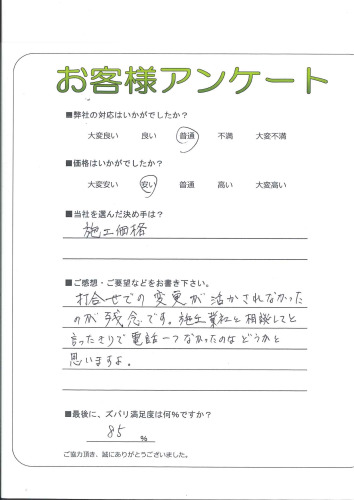 お客様アンケート
■弊社の対応はいかがでしたか？
大変良い 良い 普通 不満 大変不満
■価格はいかがでしたか？
大変安い 安い 普通 高い 大変高い
■当社を選んだ決め手は？
施工価格
■ご感想・ご要望などをお書き下さい。
打合せでの変更が活かされなかった
のが残念です。施工業社と相談してと
言ったきりで電話一つなかったのはどうかと
思いますよ。
■最後に、ズバリ満足度は何%ですか？
85 %
ご協力頂き、誠にありがとうございました。